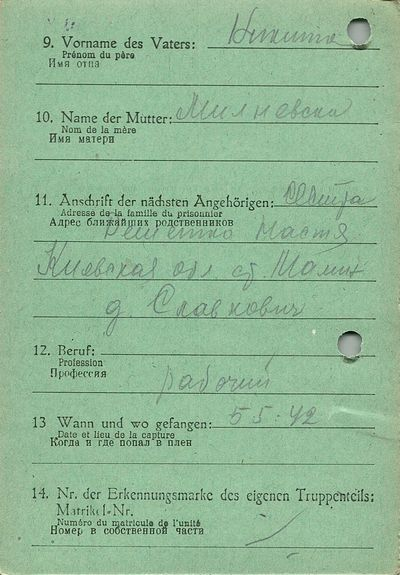 9. Vorname des Vaters: Никита
Prénom du père
Имя отца
10. Name der Mutter: Милневска
Nom de la mère
Имя матери
11. Anschrift der nächsten Angehörigen: сестра
Adresse de la famille du prisonnier
Адрес ближайших родственников
Настя
Киевская обл ст.
д. Славкович
12. Beruf:
Profession
Профессия
рабочий
13 Wann und wo gefangen: 5 5. 42
Date et lieu de la capture
Когда и где попал в плен
14. Nr. der Erkennungsmarke des eigenen Truppenteils:
Matrikel-Nr.
Numéro du matricule de l'unité
Номер в собственной части